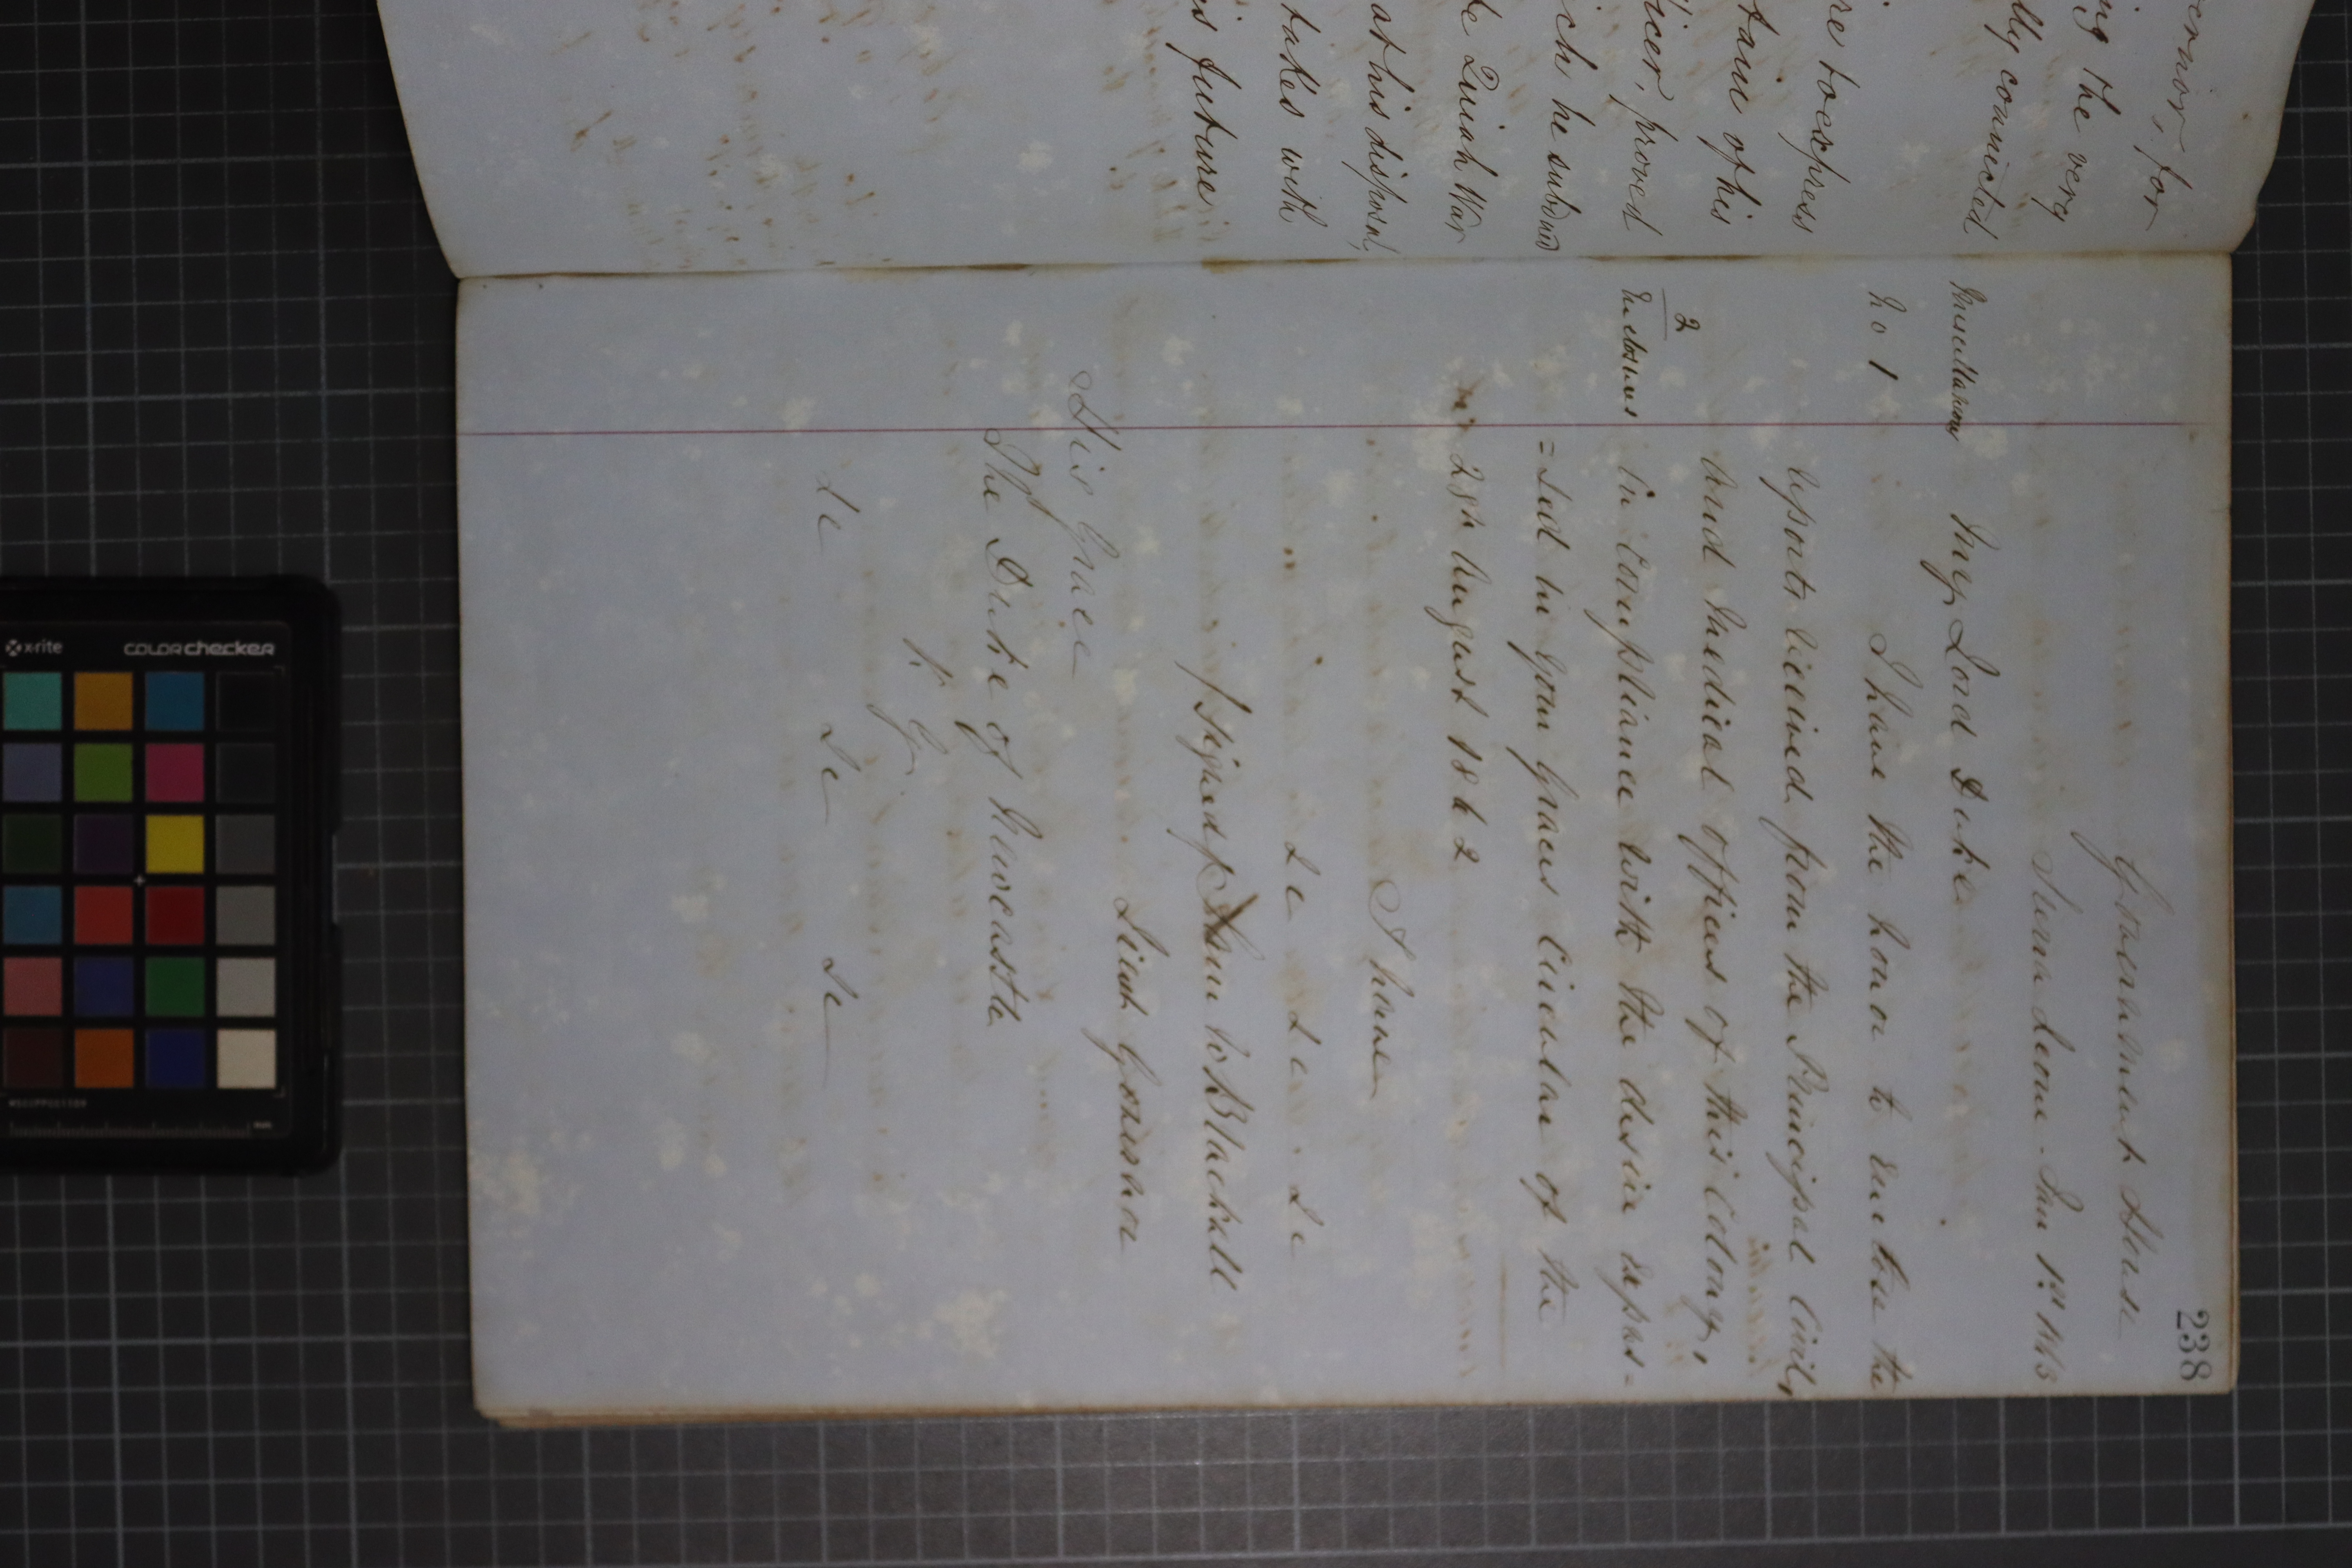 ernor, for
ing the very
lly connected
re to express
tance of his
ficer, proved
ich he subdued
te Quiah War
at his disposal,
takes with
is future
238
Government House
Sierra Leone. Jan 1st 1863
Miscellaneous My Lord Duke
No 1 I have the honor to enclose the
reports received from the Principal Civil,
and Medical Officers of this Colony,
2
Enclosures in compliance with the desire expres-
=sed in your Graces Circular of the
28th August 1862
I have
&c &c. &c
/signed/ Sam W Blackall
Lieut Governor
His Grace
The Duke of Newcastle
K. G.
&c &c &c
x-rite colorchecker